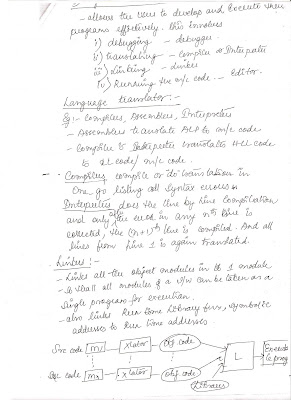 - allows the users to develop and execute their
programs effectively. this involves
i) debugging - debugger.
ii) translating - Compiler or Interpreter
iii) Linking - Linker
iv) Running the m/c code. - Editor.
Language translator:-
Eg:- Compilers, Assemblers, Interpreters
- Assemblers translate ALP to m/c code
- Compiler & Interpreter translate HLL code
to code/ m/c code.
- Compilers compile or do translation in
One go listing all syntax errors.
- Interpreters does the line by line Compilation
and only after the error in any nth line is
corrected, the (n+1)th line is compiled. And all
lines from Line 1 is again translated.
Linker:-
- Links all the object modules in to 1 module
- is shall all modules of a S/W can be taken as a
Single program for execution.
- also links Run time Library funs, symbolic
addresses to Run time addresses
Src code m1 Xlator Obj code
L
Src code Xlator obj code
Library